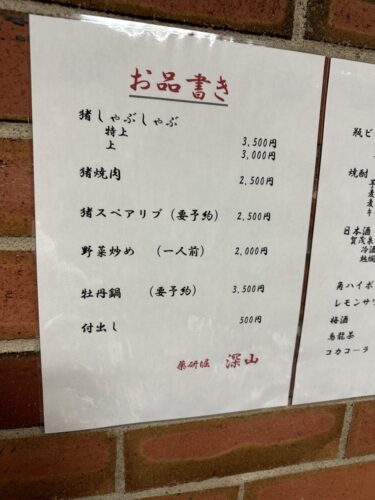 お品書き
猪しゃぶしゃぶ
特上 3,500円
上 3,000円
猪焼肉 2,500円
猪スペアリブ（要予約） 2,500円
野菜炒め （一人前） 2,000円
牡丹鍋 （要予約） 3,500円
付出し 500円
薬研堀 深山
瓶ビ
焼酎
芋
麦
麦
日本酒
賀茂泉
冷酒
熱燗
角ハイボ
レモンサワ
梅酒
烏龍茶
コカコーラ